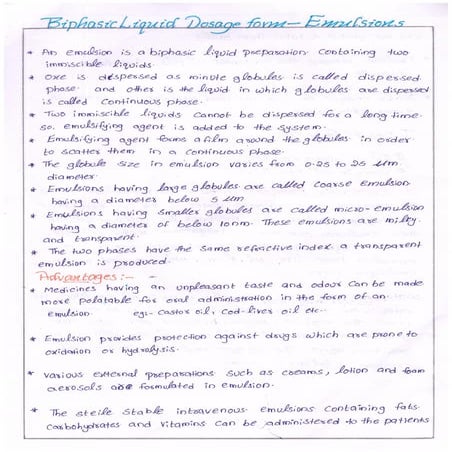 Biphasic Liquid Dosage form - Emulsions
* An emulsion is a biphasic liquid preparation containing two
immiscible liquids.
* One is dispersed as minute globules is called dispersed
phase. and others is the liquid in which globules are dispersed
is called Continuous phase.
* Two immiscible liquids cannot be dispersed for a long time.
so, emulsifying agent is added to the system.
* Emulsifying agent forms a film around the globules in order
to scatter them in a continuous phase.
* The globule size in emulsion varies from 0.25 to 25 µm
diameter.
* Emulsions having large globules are called coarse emulsion
having a diameter below 5 µm
* Emulsions having smaller globules are called micro-emulsion
having a diameter of below 10nm. These emulsions are milky
and transparent.
* The two phases have the same refractive index. a transparent
emulsion is produced.
Advantages:-
* Medicines having an unpleasant taste and odour can be made
more palatable for oral administration in the form of an
emulsion. eg:- Castor oil, Cod-liver oil etc-
* Emulsion provides protection against drugs which are prone to
oxidation or hydrolysis.
* various external preparations such as creams, lotion and foam
aerosols are formulated in emulsion.
* The steile stable intravenous emulsions containing fats.
carbohydrates and vitamins can be administered to the patients